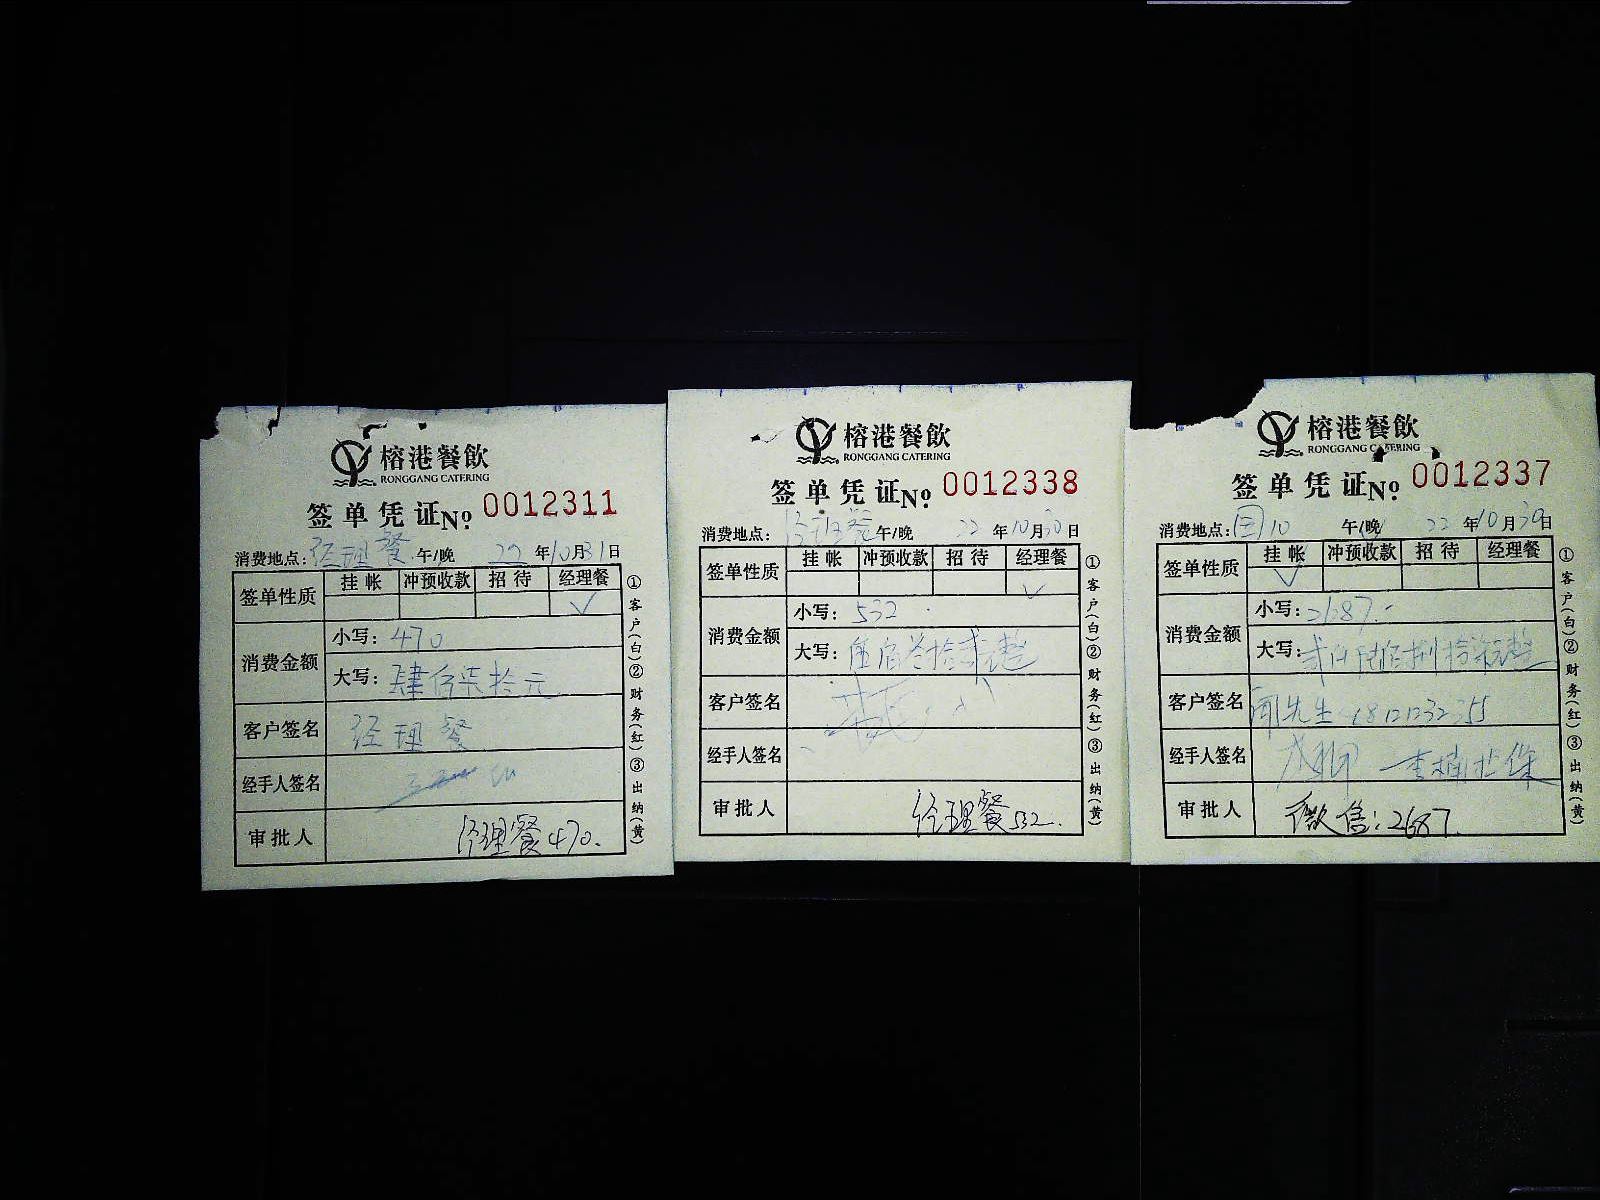 榕港餐飲
RONGGANG CATERING
签单凭证No. 0012311
消费地点: 经理餐 午/晚 22年10月31日
签单性质 挂帐 冲预收款 招待 经理餐
✓
消费金额
小写: 470
大写: 肆佰柒拾元
客户签名 经理餐
经手人签名
审批人 经理餐470.
①客户(白)②财务(红)③出纳(黄)
榕港餐飲
RONGGANG CATERING
签单凭证No. 0012338
消费地点: 经理餐 午/晚 22年10月30日
签单性质 挂帐 冲预收款 招待 经理餐
✓
消费金额
小写: 532
大写: 伍佰叁拾贰元整
客户签名
经手人签名
审批人 经理餐532.
①客户(白)②财务(红)③出纳(黄)
榕港餐飲
RONGGANG CATERING
签单凭证No. 0012337
消费地点: 国10 午/晚 22年10月30日
签单性质 挂帐 冲预收款 招待 经理餐
✓
消费金额
小写: 2687.-
大写: 贰仟陆佰捌拾柒元整
客户签名 先生
经手人签名
审批人 微信:2687.
①客户(白)②财务(红)③出纳(黄)